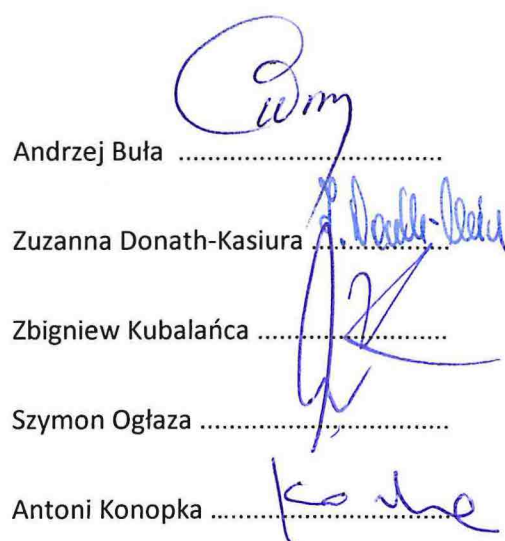 Andrzej Buła ............................................
Zuzanna Donath-Kasiura ...........................
Zbigniew Kubalańca ................................
Szymon Ogłaza ..........................................
Antoni Konopka ........................................